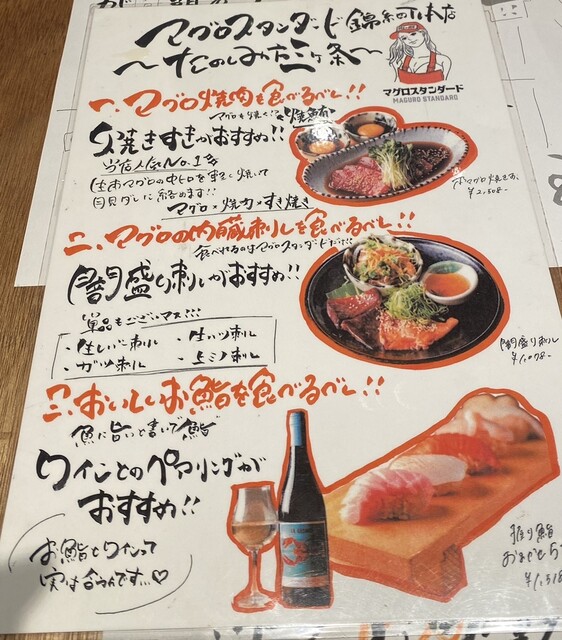 マグロスタンダード 錦糸町本店
〜たのしみかた三ヶ条〜
マグロスタンダード
MAGURO STANDARD
一、マグロ焼肉を食べるべし!!
マグロを焼く!? 焼鮪
焼きすきがおすすめ!!
当店人気No.1
生本マグロの中トロを軽く焼いて
マグロ×焼肉×すき焼き
本マグロ焼きすき
¥2,508-
二、マグロの内臓刺しを食べるべし!!
食べれるのはマグロスタンダードだけ!!
闇盛り刺しがおすすめ!!
単品もございマス!!!
・ガツ刺し
・ミノ刺し
闇盛り刺し
¥1,078-
三、おいしいお鮨を食べるべし!!
魚に旨いと書いて鮨
ワインとのペアリングが
おすすめ!!
お鮨とワインって
実は合うんです...♡
握り鮨
おまかせ5
¥1,518